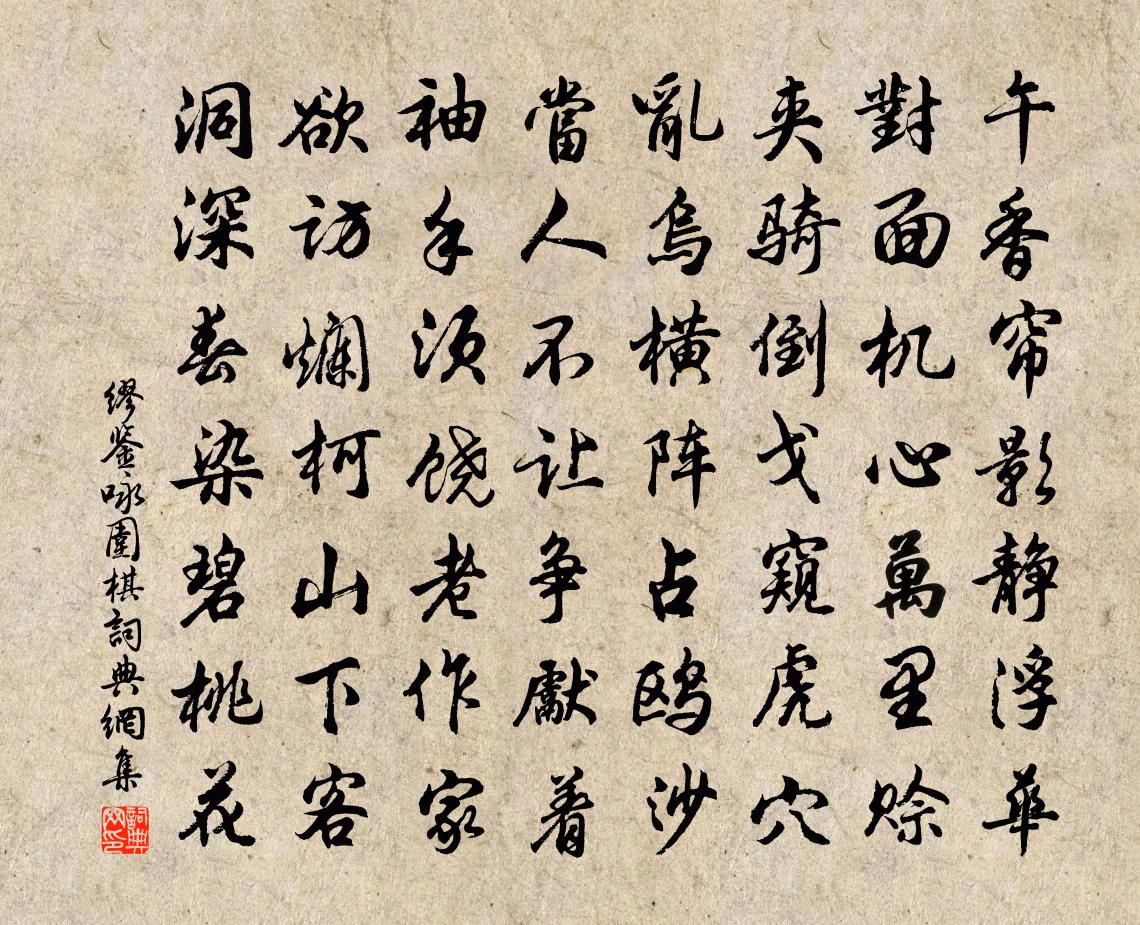 午香帘影静浮華
對面机心萬里赊
夹骑倒戈窺虎穴
亂烏横阵占鸥沙
當人不让争獻着
袖手须饶老作家
欲访爛柯山下客
洞深春染碧桃花
缪鉴咏圍棋詞典網集
詞典网印